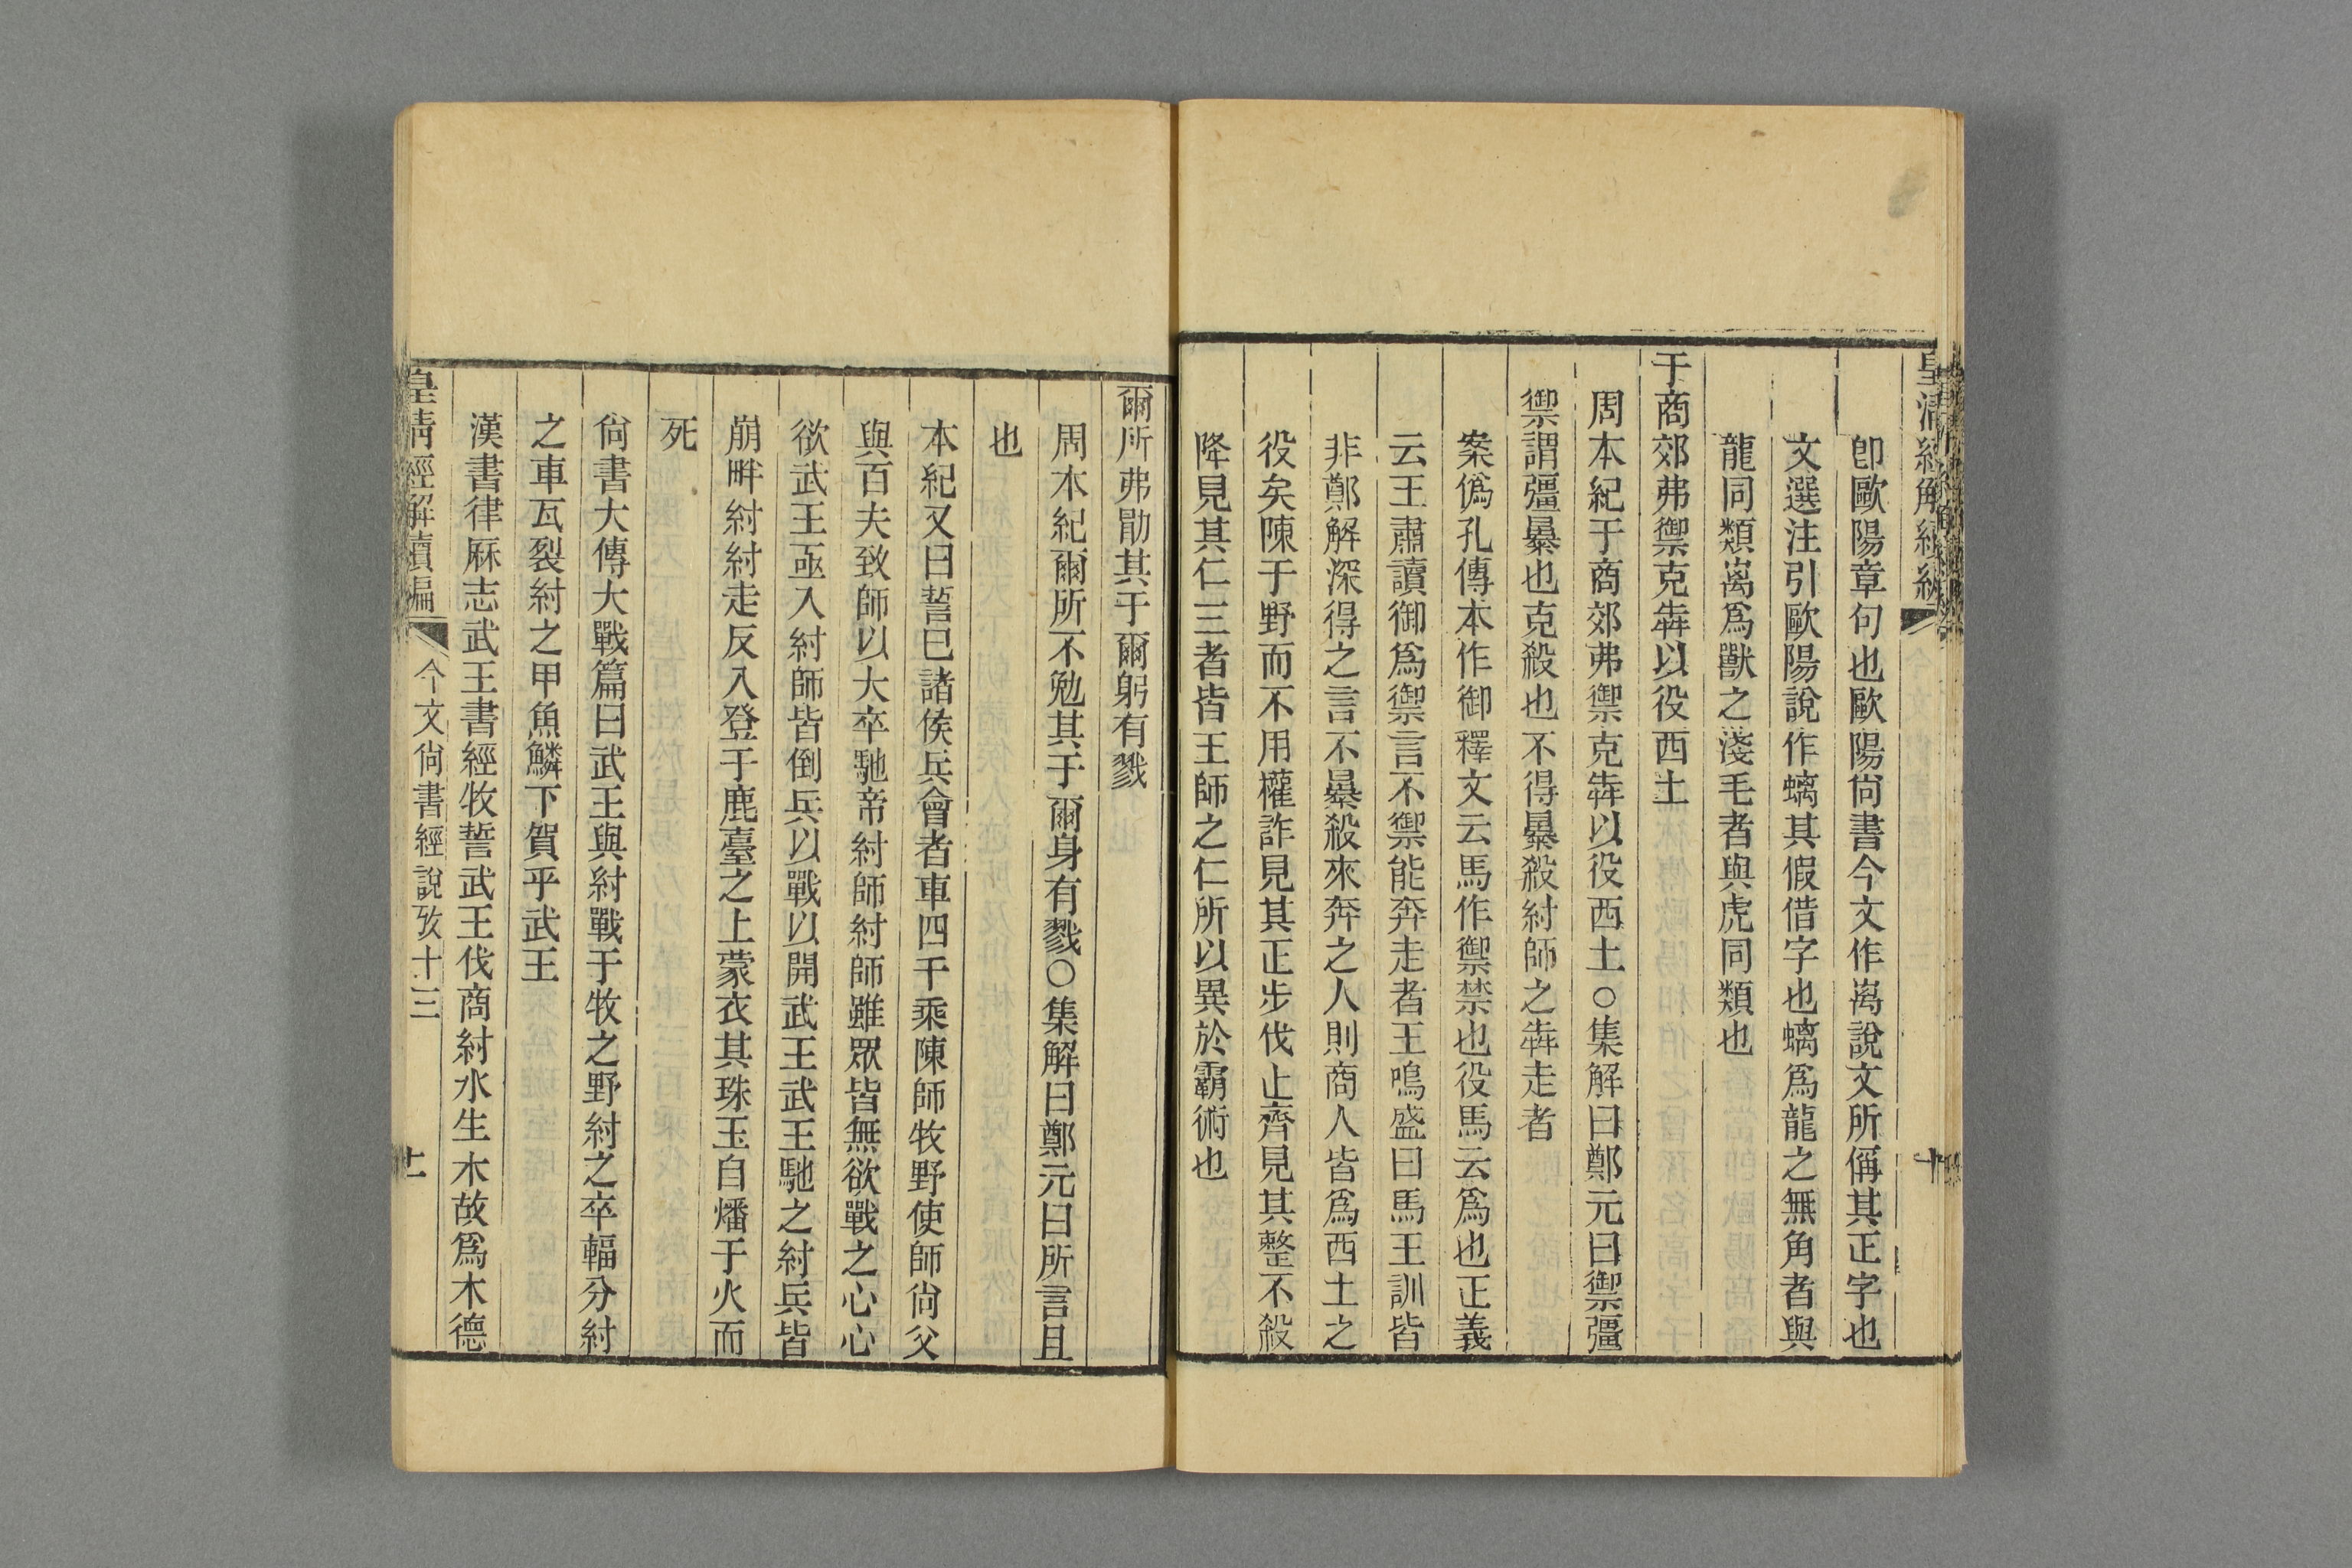 皇清經解續編
十
卽歐陽章句也歐陽尙書今文作离說文所偁其正字也
文選注引歐陽說作螭其假借字也螭爲龍之無角者與
龍同類离爲獸之淺毛者與虎同類也
于商郊弗禦克犇以役西土
周本紀于商郊弗禦克犇以役西土○集解曰鄭元曰禦彊
禦謂彊暴也克殺也不得暴殺紂師之犇走者
案僞孔傳本作御釋文云馬作禦禁也役馬云爲也正義
云王肅讀御爲禦言不禦能奔走者王鳴盛曰馬王訓皆
非鄭解深得之言不暴殺來奔之人則商人皆爲西土之
役矣陳于野而不用權詐見其正步伐止齊見其整不殺
降見其仁三者皆王師之仁所以異於霸術也
爾所弗勖其于爾躬有戮
周本紀爾所不勉其于爾身有戮○集解曰鄭元曰所言且
也
本紀又曰誓已諸侯兵會者車四千乘陳師牧野使師尙父
與百夫致師以大卒馳帝紂師紂師雖眾皆無欲戰之心心
欲武王亟入紂師皆倒兵以戰以開武王武王馳之紂兵皆
崩畔紂紂走反入登于鹿臺之上蒙衣其珠玉自燔于火而
死
尙書大傳大戰篇曰武王與紂戰于牧之野紂之卒輻分紂
之車瓦裂紂之甲魚鱗下賀乎武王
漢書律厤志武王書經牧誓武王伐商紂水生木故爲木德
皇清經解續編
今文尙書經說攷十三
十一